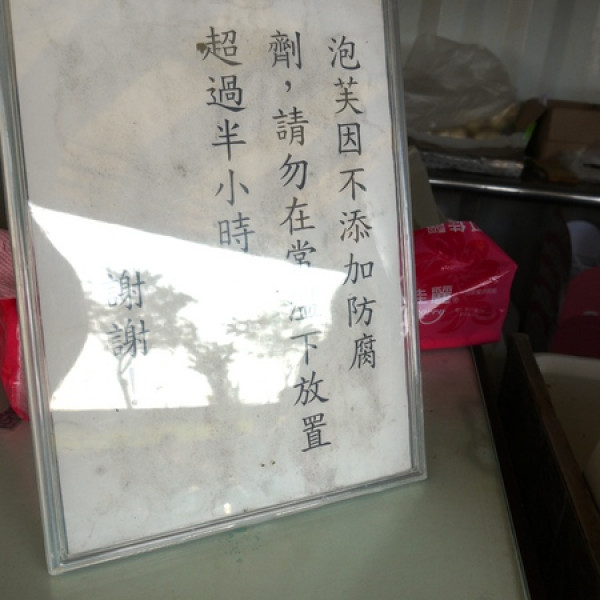 泡芙因不添加防腐
劑，請勿在常溫下放置
超過半小時
謝謝
佳麗